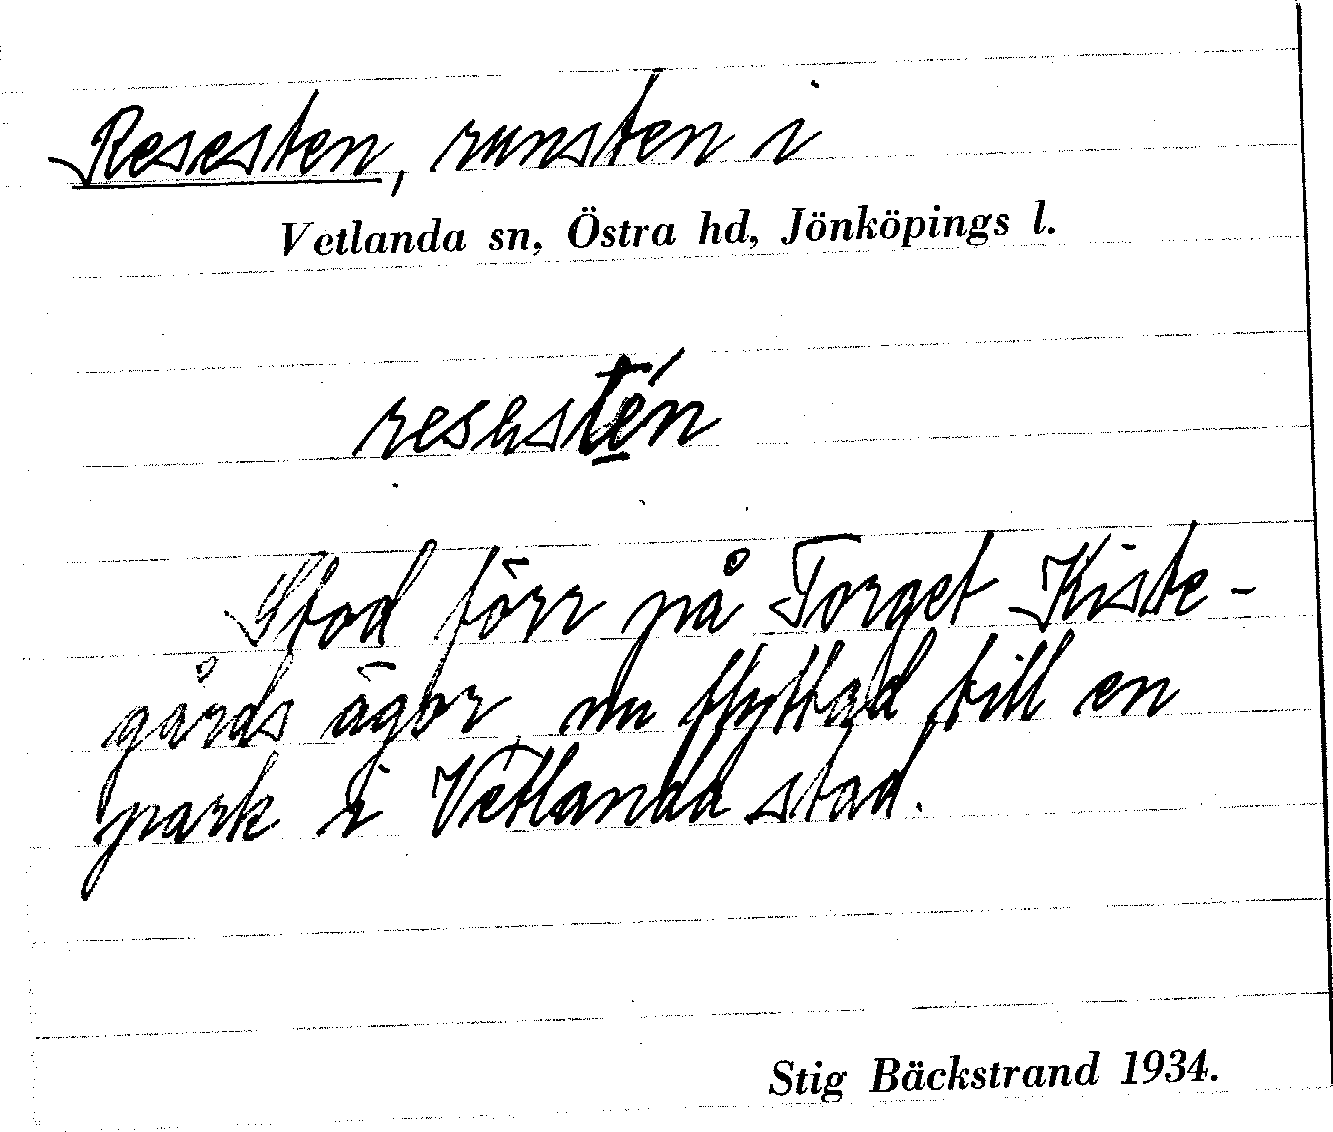 Resesten, runsten i
Vetlanda sn, Östra hd, Jönköpings l.
Stod förr på Torget Kiste-
gårds ägor nu flyttad till en
park i Vetlanda stad.
Stig Bäckstrand 1934.